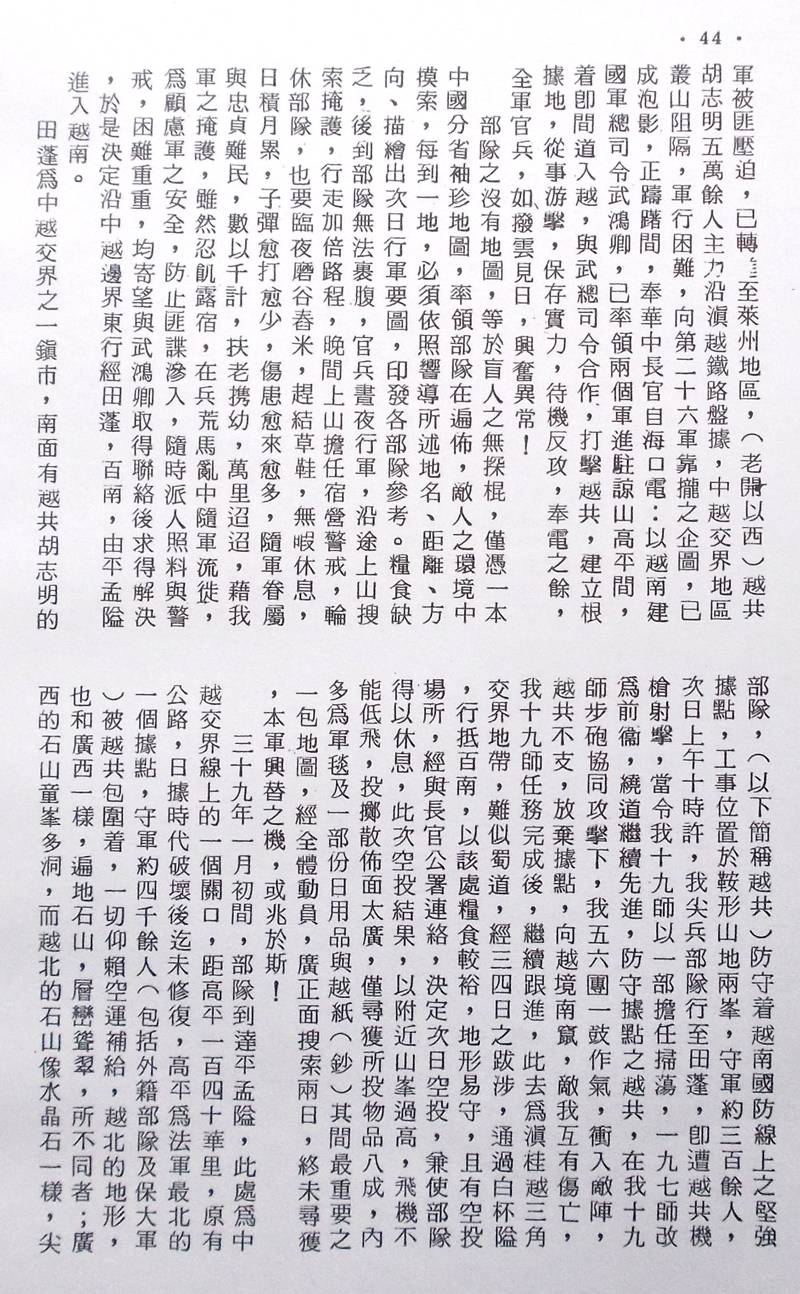 • 44 •
軍被匪壓迫，已轉至萊州地區，（老開以西）越共
胡志明五萬餘人主力沿滇越鐵路盤據，中越交界地區
叢山阻隔，軍行困難，向第二十六軍靠攏之企圖，已
成泡影，正躊躇間，奉華中長官自海口電：以越南建
國軍總司令武鴻卿，已率領兩個軍進駐諒山高平間，
着卽間道入越，與武總司令合作，打擊越共，建立根
據地，從事游擊，保存實力，待機反攻，奉電之餘，
全軍官兵，如撥雲見日，興奮異常！
部隊之沒有地圖，等於盲人之無探棍，僅憑一本
中國分省袖珍地圖，率領部隊在遍佈，敵人之環境中
摸索，每到一地，必須依照響導所述地名、距離、方
向、描繪出次日行軍要圖，印發各部隊參考。糧食缺
乏，後到部隊無法裹腹，官兵晝夜行軍，沿途上山搜
索掩護，行走加倍路程，晚間上山擔任宿營警戒，輪
休部隊，也要臨夜磨谷舂米，趕結草鞋，無暇休息，
日積月累，子彈愈打愈少，傷患愈來愈多，隨軍眷屬
與忠貞難民，數以千計，扶老携幼，萬里迢迢，藉我
軍之掩護，雖然忍飢露宿，在兵荒馬亂中隨軍流徙，
爲顧慮軍之安全，防止匪諜滲入，隨時派人照料與警
戒，困難重重，均寄望與武鴻卿取得聯絡後求得解決
，於是決定沿中越邊界東行經田蓬，百南，由平孟隘
進入越南。
田蓬爲中越交界之一鎭市，南面有越共胡志明的
部隊，（以下簡稱越共）防守着越南國防線上之堅強
據點，工事位置於鞍形山地兩峯，守軍約三百餘人，
次日上午十時許，我尖兵部隊行至田蓬，卽遭越共機
槍射擊，當令我十九師以一部擔任掃蕩，一九七師改
爲前衞，繞道繼續先進，防守據點之越共，在我十九
師步砲協同攻擊下，我五六團一鼓作氣，衝入敵陣，
越共不支，放棄據點，向越境南竄，敵我互有傷亡，
我十九師任務完成後，繼續跟進，此去爲滇桂越三角
交界地帶，難似蜀道，經三四日之跋涉，通過白杯隘
，行抵百南，以該處糧食較裕，地形易守，且有空投
場所，經與長官公署連絡，決定次日空投，兼使部隊
得以休息，此次空投結果，以附近山峯過高，飛機不
能低飛，投擲散佈面太廣，僅尋獲所投物品八成，內
多爲軍毯及一部份日用品與越紙（鈔）其間最重要之
一包地圖，經全體動員，廣正面搜索兩日，終未尋獲
，本軍興替之機，或兆於斯！
三十九年一月初間，部隊到達平孟隘，此處爲中
越交界線上的一個關口，距高平一百四十華里，原有
公路，日據時代破壞後迄未修復，高平爲法軍最北的
一個據點，守軍約四千餘人（包括外籍部隊及保大軍
）被越共包圍着，一切仰賴空運補給，越北的地形，
也和廣西一樣，遍地石山，層巒聳翠，所不同者；廣
西的石山童峯多洞，而越北的石山像水晶石一樣，尖